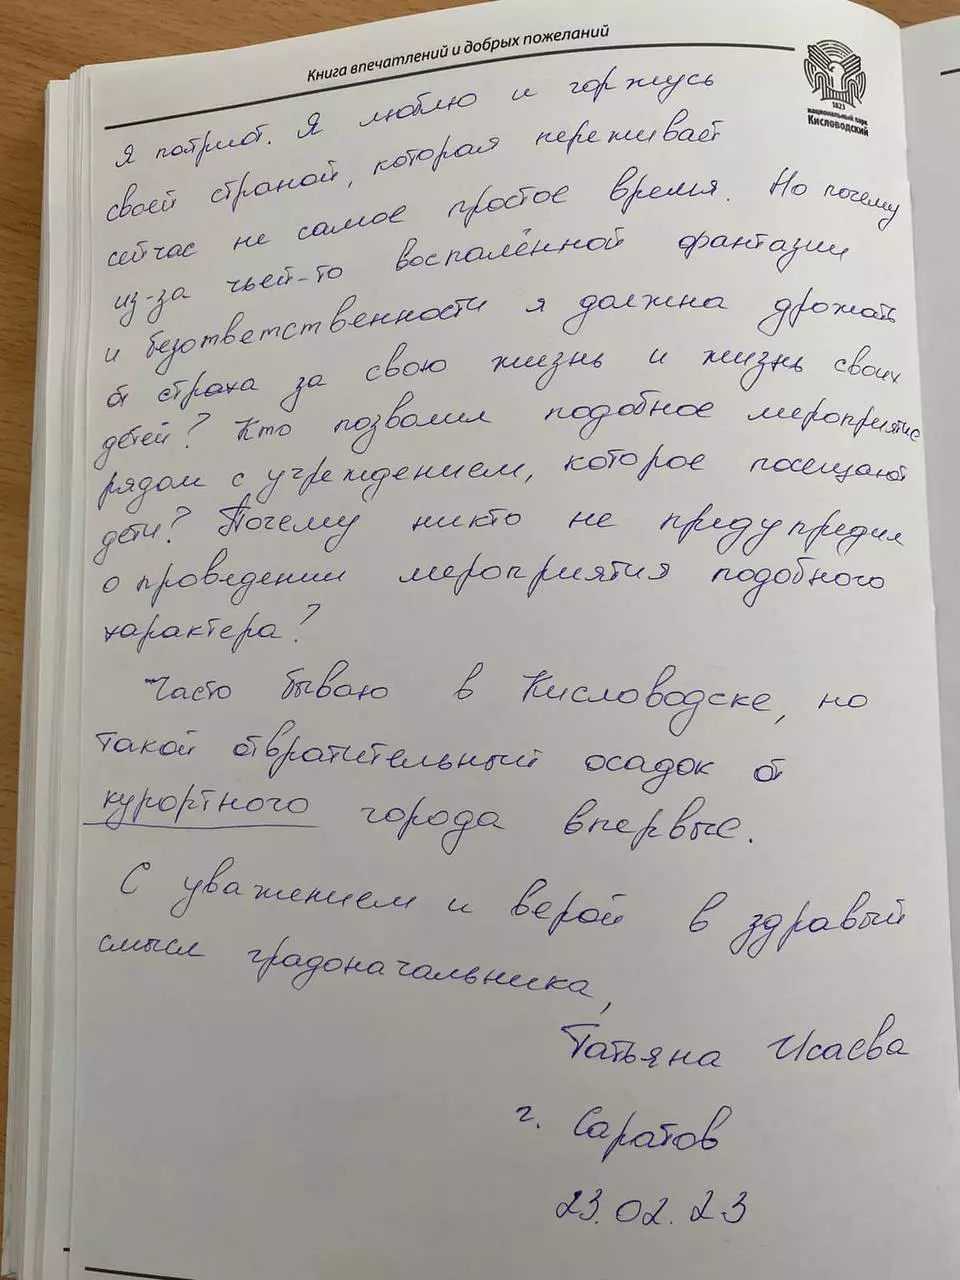 Книга впечатлений и добрых пожеланий
1823
национальный парк
Кисловодский
Я патриот. Я люблю и горжусь
своей страной, которая переживает
сейчас не самое простое время. Но почему
из-за чьей-то воспалённой фантазии
и безответственности я должна дрожать
от страха за свою жизнь и жизнь своих
детей? Кто позволил подобное мероприятие
рядом с учреждением, которое посещают
дети? Почему никто не предупредил
о проведении мероприятия подобного
характера?
Часто бываю в Кисловодске, но
такой отвратительный осадок от
курортного города впервые.
С уважением и верой в здравый
смысл градоначальника,
Татьяна Исаева
г. Саратов
23.02.23